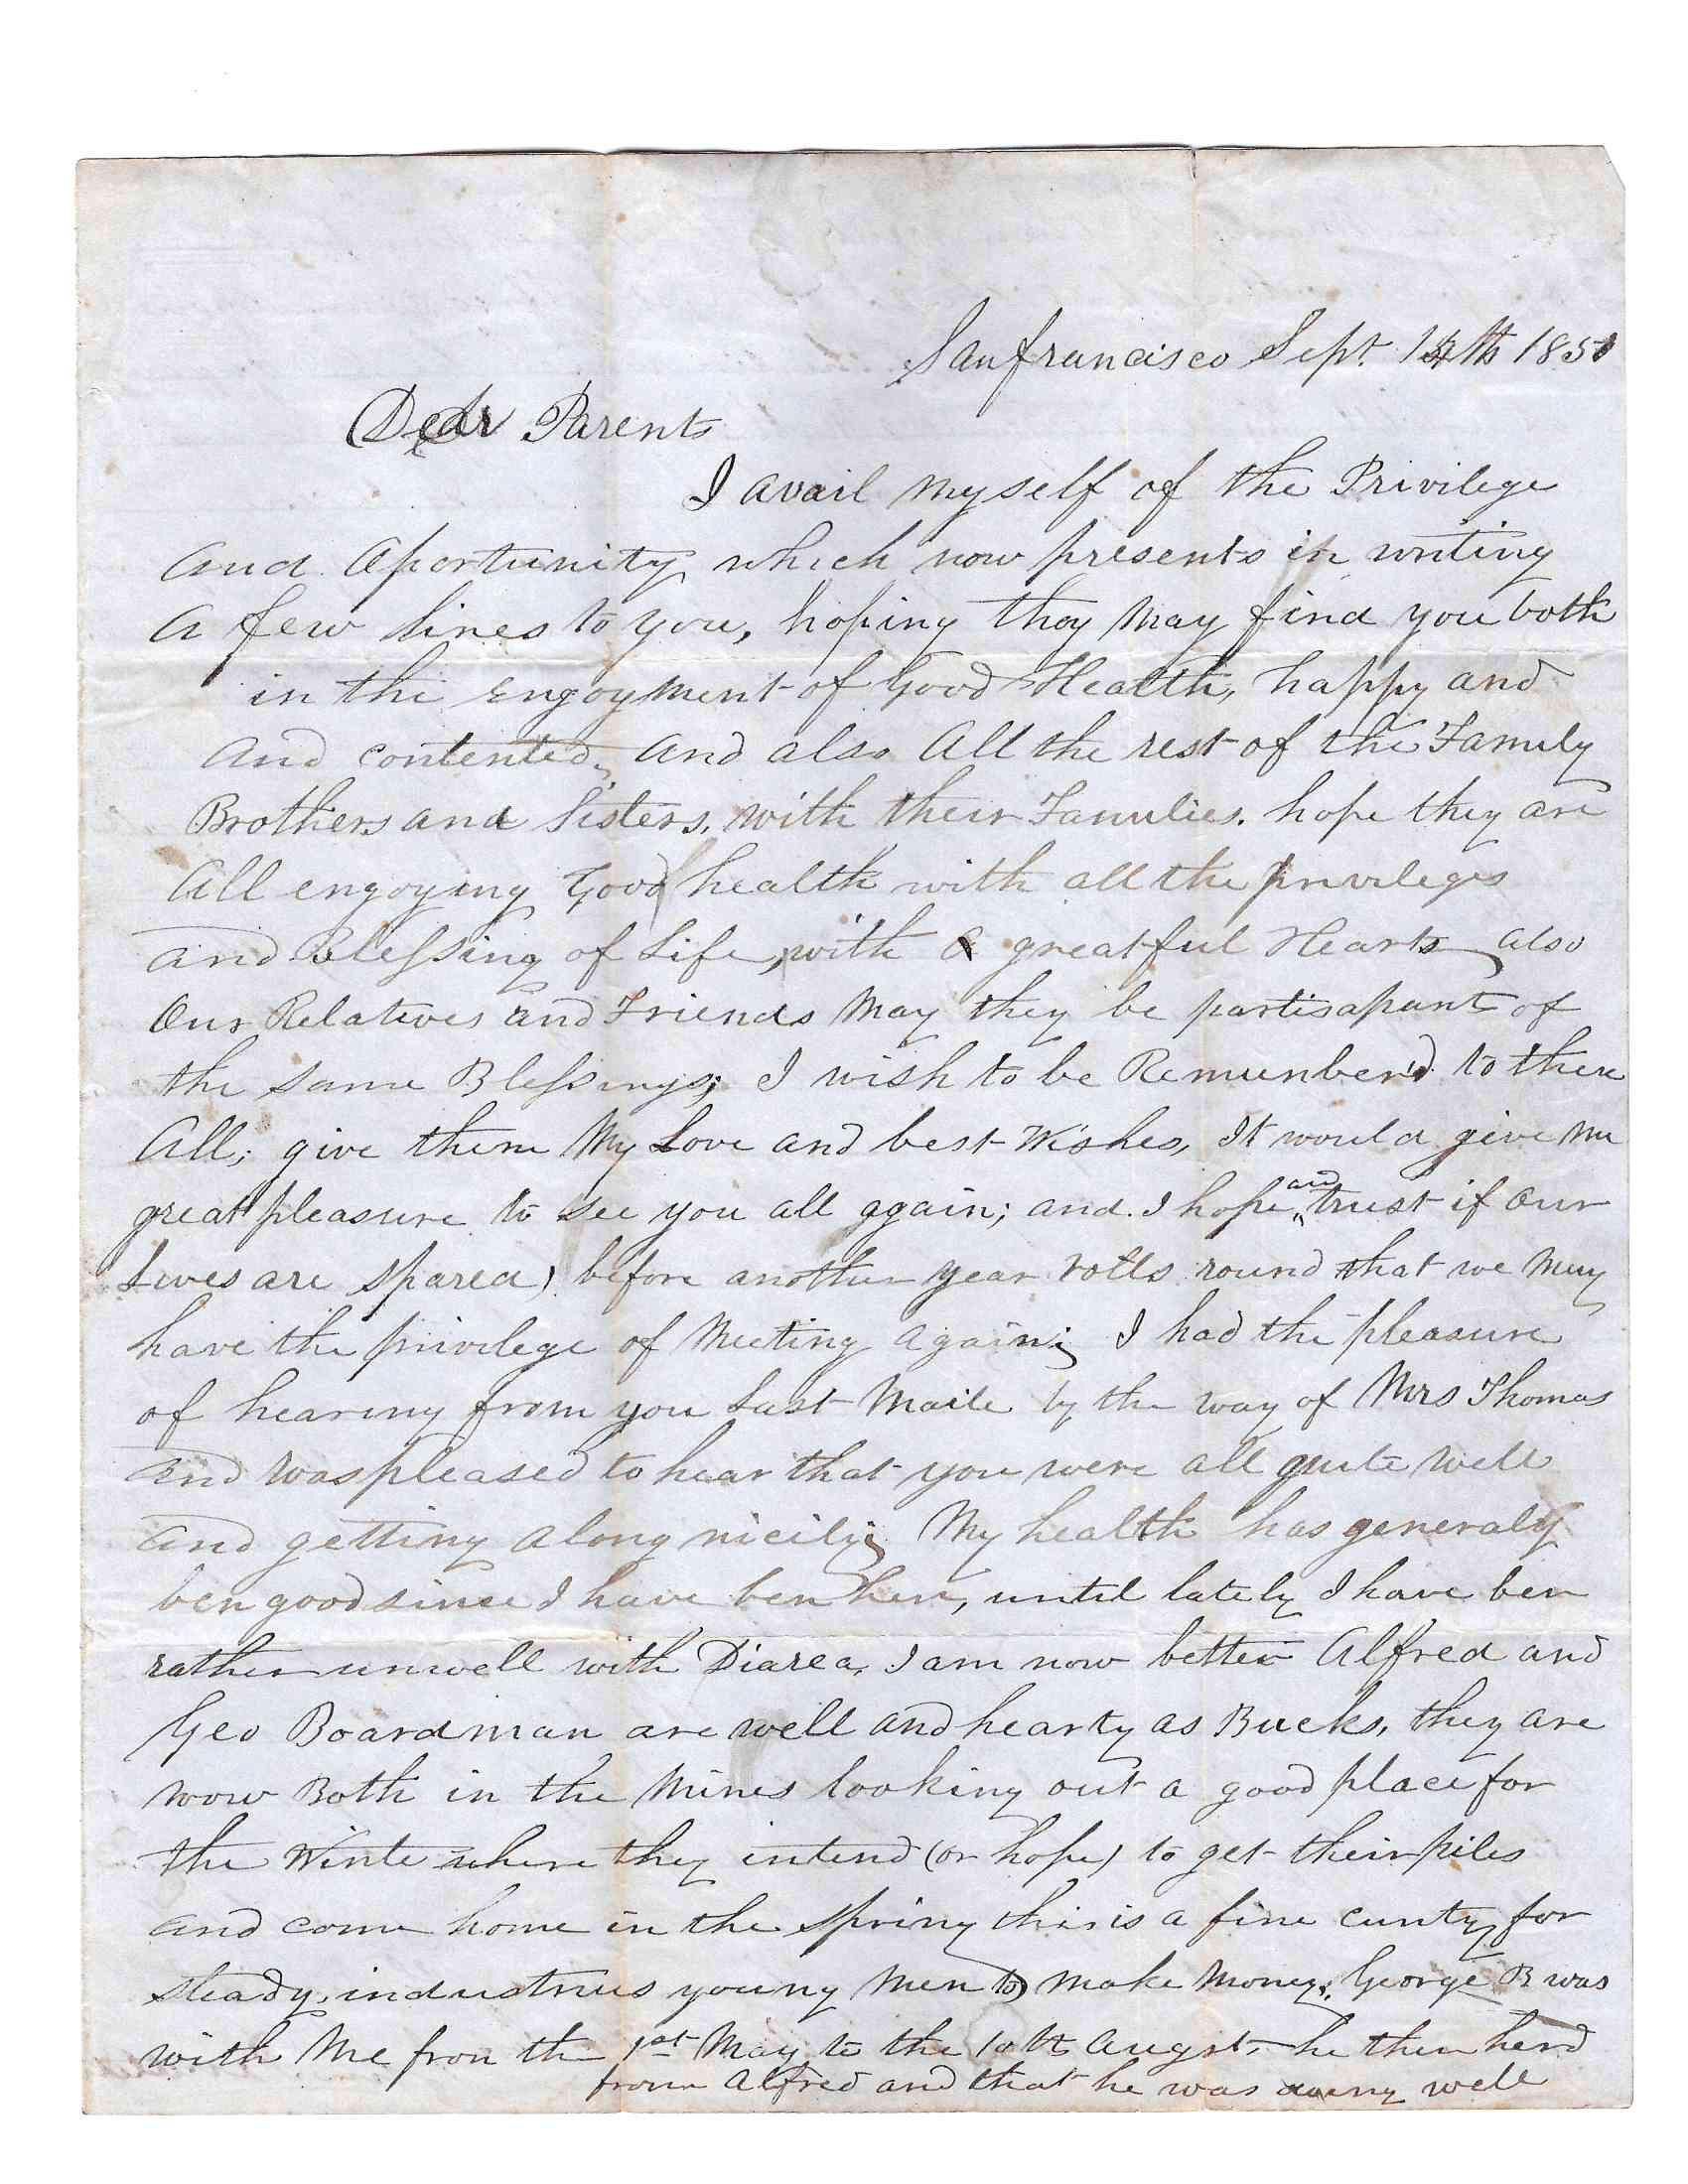 Sanfrancisco Sept. 14th 1850
Dear Parents
I avail myself of the Privilege
and Aportunity which now presents in writing
a few lines to you, hoping thay may find you both
in the engoyment of Good Health, happy and
and contented, and also all the rest of the Family
Brothers and Sisters, with their Families. hope they are
All engoying Good health with all the privileges
and Blessing of Life, with a greatful Hearts also
Our Relatives and Friends may they be partisapants of
the same Blessings; I wish to be Remunber'd to there
All; give them My Love and best Wishes, It would give me
great pleasure to see you all again; and I hope and trust if our
Lives are spared, before another year rolls round that we may
have the privilege of Meeting again; I had the pleasure
of hearing from you Last Maile by the way of Mrs Thomas
and was pleased to hear that you were all quite well
and getting along nicily; My health has generaly
ben good since I have ben here, until lately I have ben
rather unwell with Diarea, I am now better Alfred and
Geo Boardman are well and hearty as Bucks, they are
now Both in the Mines looking out a good place for
the Winte where they intend (or hope) to get their piles
and come home in the spring this is a fine cunty for
steady, industrius young men to make money; George B was
with Me from the 1st May to the 10th Augst, he then herd
from Alfred and that he was doing well